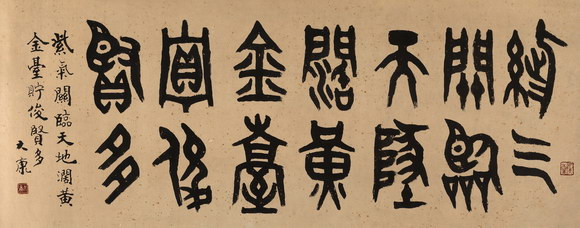 紫气
關臨
天地
闊黃
金臺
貯俊
賢多
紫氣關臨天地濶黃
金臺貯俊賢多
大康